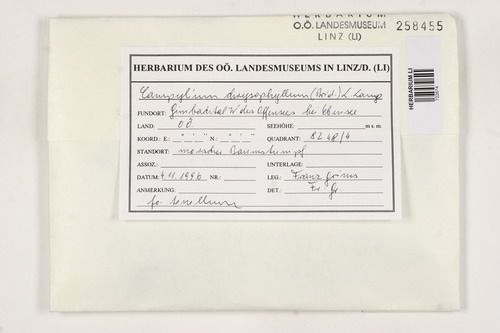 HERBARIUM
O.Ö. LANDESMUSEUM 258455
LINZ (LI)
HERBARIUM LI
HERBARIUM DES OÖ. LANDESMUSEUMS IN LINZ/D. (LI)
Campylium chrysophyllum (Brid.) J. Lange
FUNDORT: Gimbachtal W des Offensees bei Ebensee
LAND: OÖ. SEEHÖHE: m s. m.
KOORD.: E: ° ' " N.: ° ' " QUADRANT: 8248/4
STANDORT: morscher Baumstumpf
ASSOZ.: UNTERLAGE:
DATUM: 4.11.1996 NR.: LEG.: Franz Grims
ANMERKUNG: DET.: Fr. Gr.
fo. tenellum